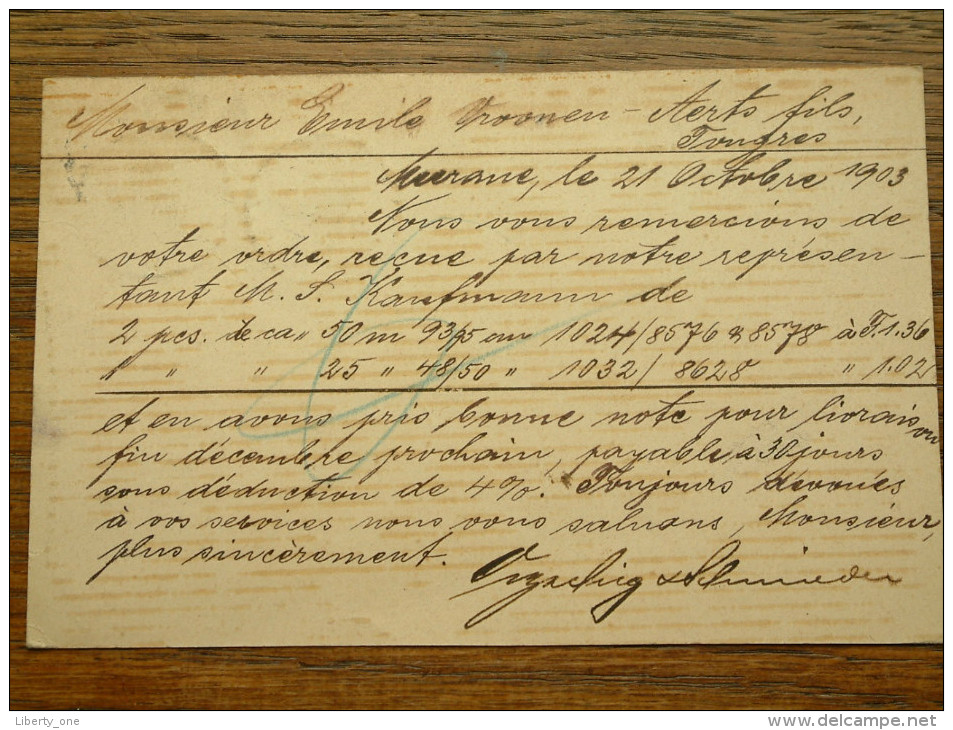 Monsieur Emile Vroonen - Aerts fils,
Tongres
Meerane, le 21 Octobre 1903
Nous vous remercions de
votre ordre, reçue par notre représen-
tant M. S. Kaufmann de
2 pcs. de ca. 50 m 93/5 cm 1024/8576 & 8578 à F. 1.36
" " " 25 " 48/50 " 1032/ 8628 " 1.02
et en avons pris bonne note pour livraison
fin décembre prochain, payable à 30 jours
sous déduction de 4%. Toujours dévoués
à vos services nous vous saluons, Monsieur,
plus sincèrement.
& Schmieder
Liberty_one
www.delcampe.net